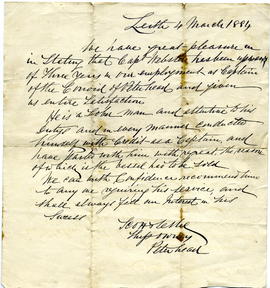 Leith 4 March 1884
We have great pleasure in
in Stating that Capt Webster has been upwards
of Three Years in our employment as Captain
of the Convoid of Peterhead and given
us entire Satisfaction
He is a Sober man and attentive to his
Dutys and in every manner conducted
himself with Credit as a Captain, and
have parted with him with regret the reason
of which is the vessel has to be sold
We can with Confidence recommend him
to any one requiring his service, and
shall always feel an interest in his
Sucess
Scott &
Ship owners
Peterhead